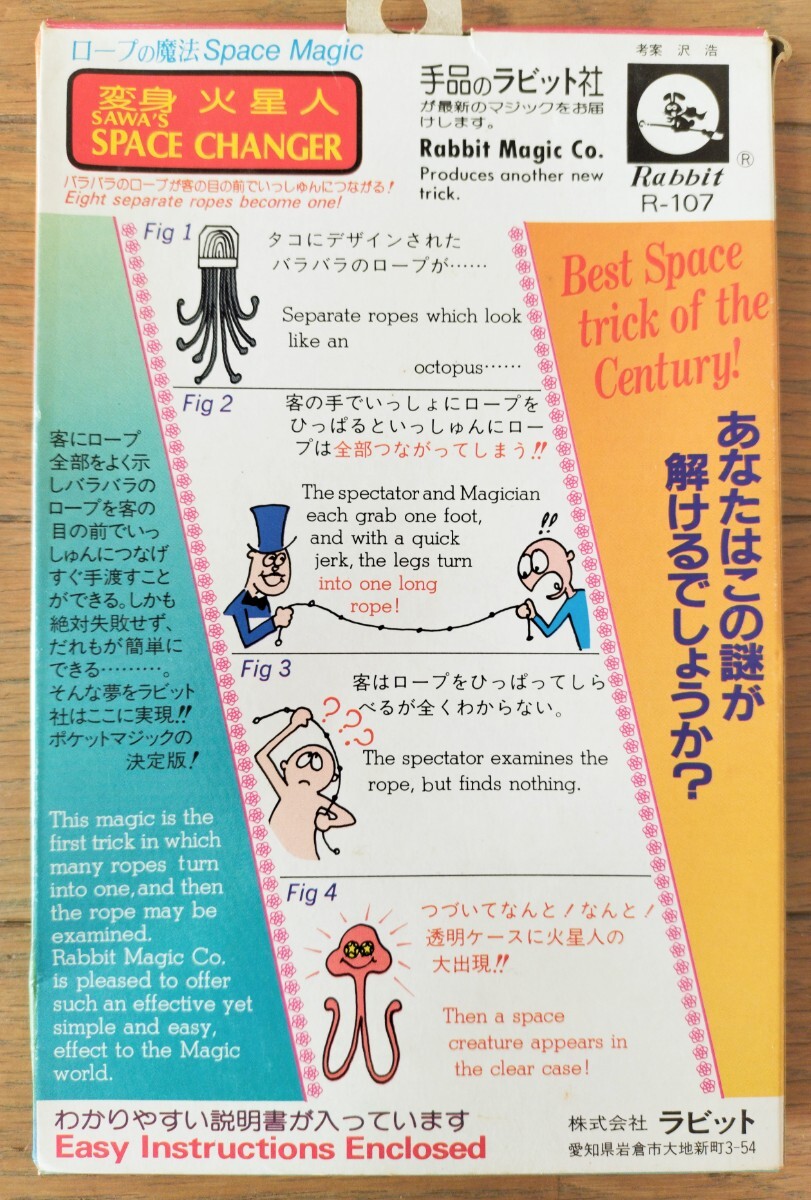 ロープの魔法 Space Magic
変身 火星人
SAWA'S
SPACE CHANGER
バラバラのロープが客の目の前でいっしゅんにつながる！
Eight separate ropes become one!
手品のラビット社
が最新のマジックをお届
けします。
Rabbit Magic Co.
Produces another new
trick.
考案 沢 浩
Rabbit ®
R-107
Fig 1
タコにデザインされた
バラバラのロープが……
Separate ropes which look
like an
octopus……
Best Space
trick of the
Century!
あなたはこの謎が
解けるでしょうか？
Fig 2
客の手でいっしょにロープを
ひっぱるといっしゅんにロー
プは全部つながってしまう!!
The spectator and Magician
each grab one foot,
and with a quick
jerk, the legs turn
into one long
rope!
!!
客にロープ
全部をよく示
しバラバラの
ロープを客の
目の前でいっ
しゅんにつなげ
すぐ手渡すこと
ができる。しかも
絶対失敗せず、
だれもが簡単に
できる………。
そんな夢をラビット
社はここに実現!!
ポケットマジックの
決定版！
Fig 3
客はロープをひっぱってしら
べるが全くわからない。
???
The spectator examines the
rope, but finds nothing.
This magic is the
first trick in which
many ropes turn
into one, and then
the rope may be
examined.
Rabbit Magic Co.
is pleased to offer
such an effective yet
simple and easy,
effect to the Magic
world.
Fig 4
つづいてなんと！なんと！
透明ケースに火星人の
大出現!!
Then a space
creature appears in
the clear case!
わかりやすい説明書が入っています
Easy Instructions Enclosed
株式会社 ラビット
愛知県岩倉市大地新町3-54